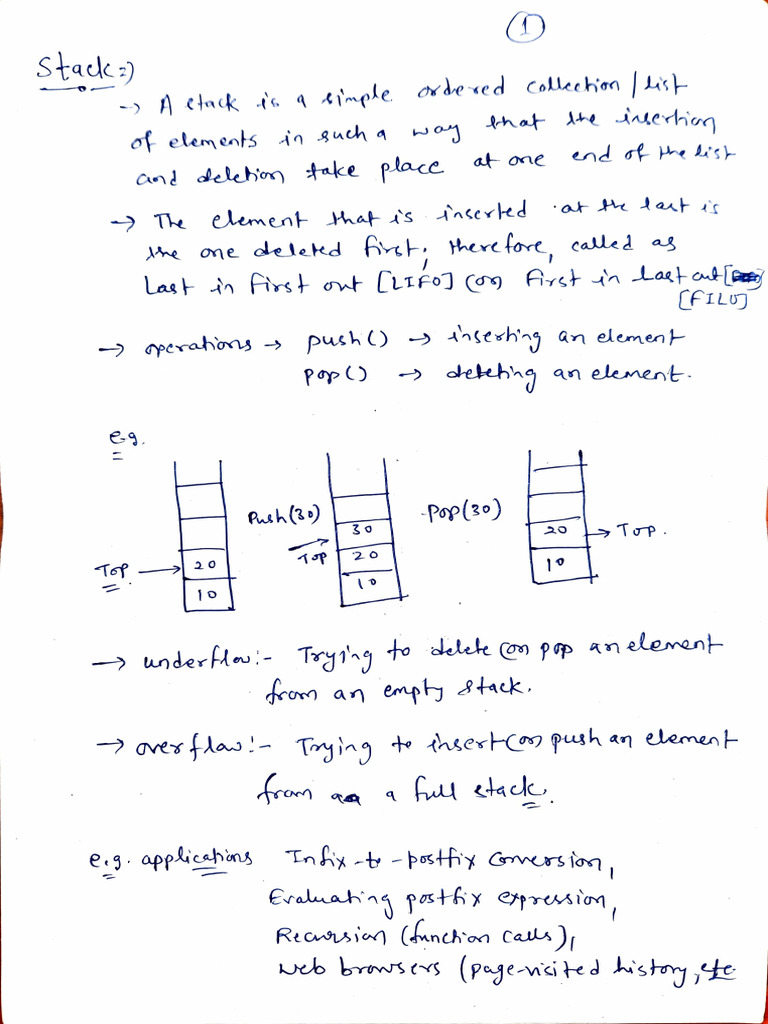 1
Stack⇒
→ A stack is a simple ordered collection/list
of elements in such a way that the insertion
and deletion take place at one end of the list
→ The element that is inserted at the last is
the one deleted first, therefore, called as
Last in first out [LIFO] (or) First in Last out
[FILO]
→ operations → push() → inserting an element
pop() → deleting an element.
e.g.
Push(30)
Pop(30)
Top → 20
10
Top → 30
20
10
20 → Top.
10
→ underflow:- Trying to delete (or) pop an element
from an empty stack.
→ overflow:- Trying to insert (or) push an element
from a full stack.
e.g. applications Infix-to-postfix conversion,
Evaluating postfix expression,
Recursion (function calls),
Web browsers (page-visited history, etc.